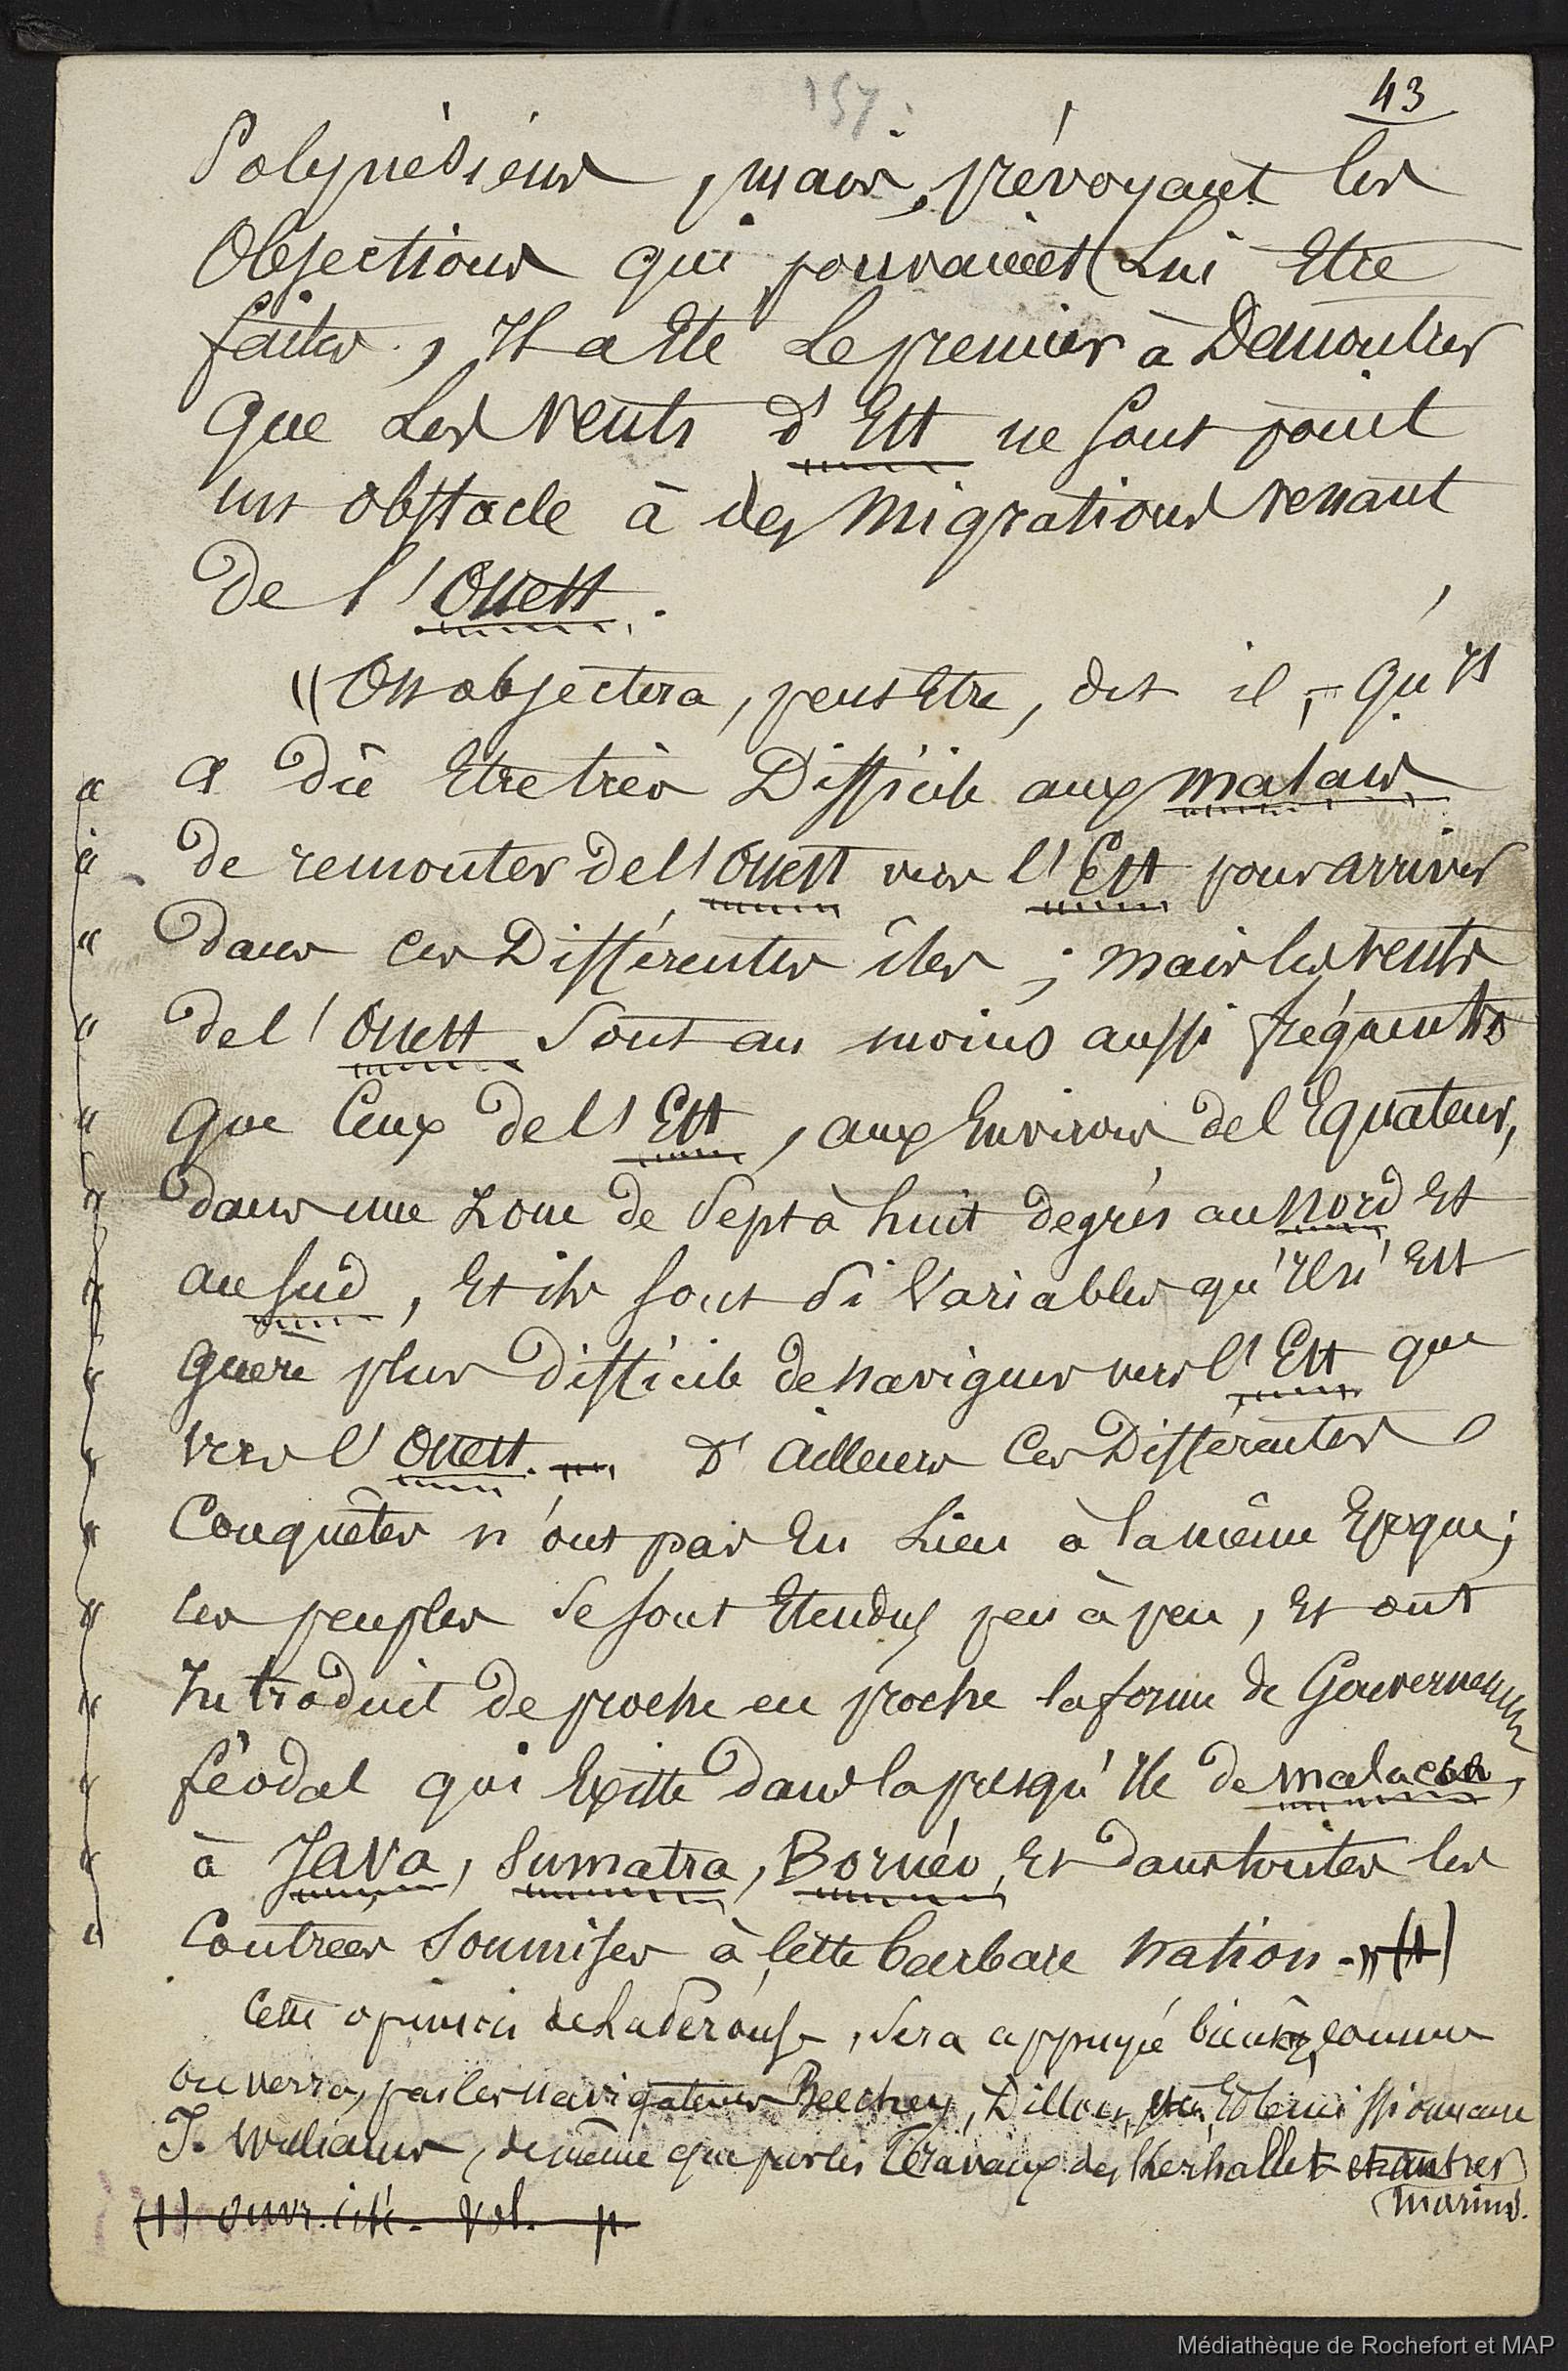 157.
43
Polynésiens, mais, prévoyant les
Objections qui pouvaient Lui Etre
faites, Il a Eté Le premier à Démontrer
que Les vents d'Est ne sont point
un obstacle à des Migrations venant
De l'Ouest.
"On objectera, peut Etre, dit il, - qu'Il
" a dû Etre très Difficile aux malais
" de remonter de l'Ouest vers l'Est pour arriver
" dans ces Différentes îles ; mais les vents
" de l'Ouest sont au moins aussi fréquents
" que Ceux de l'Est, aux Environs de l'Equateur,
" dans une Zone de Sept à huit degrés au Nord Et
" au Sud, Et ils sont si Variables qu'Il n'Est
" guère plus difficile de naviguer vers l'Est que
" vers l'Ouest. — D'Ailleurs Ces Différentes
" Conquêtes n'ont pas Eu Lieu à la même Epoque ;
" ces peuples se sont Etendus peu à peu, Et ont
" Introduit de proche en proche la forme de Gouvernement
" féodal qui Existe dans la presqu'Ile de malacca,
" à Java, Sumatra, Bornéo, Et dans toutes les
" Contrées Soumises à Cette barbare nation." (1)
Cette opinion de LaPérouse, sera appuyé bientôt, comme
on verra, par les navigateurs Beechey, Dillon, Et le missionnaire
J. Williams, de même que par les Travaux des Kerhallet et autres
marins.
(1) ouvr. cité. Vol. p.
Médiathèque de Rochefort et MAP